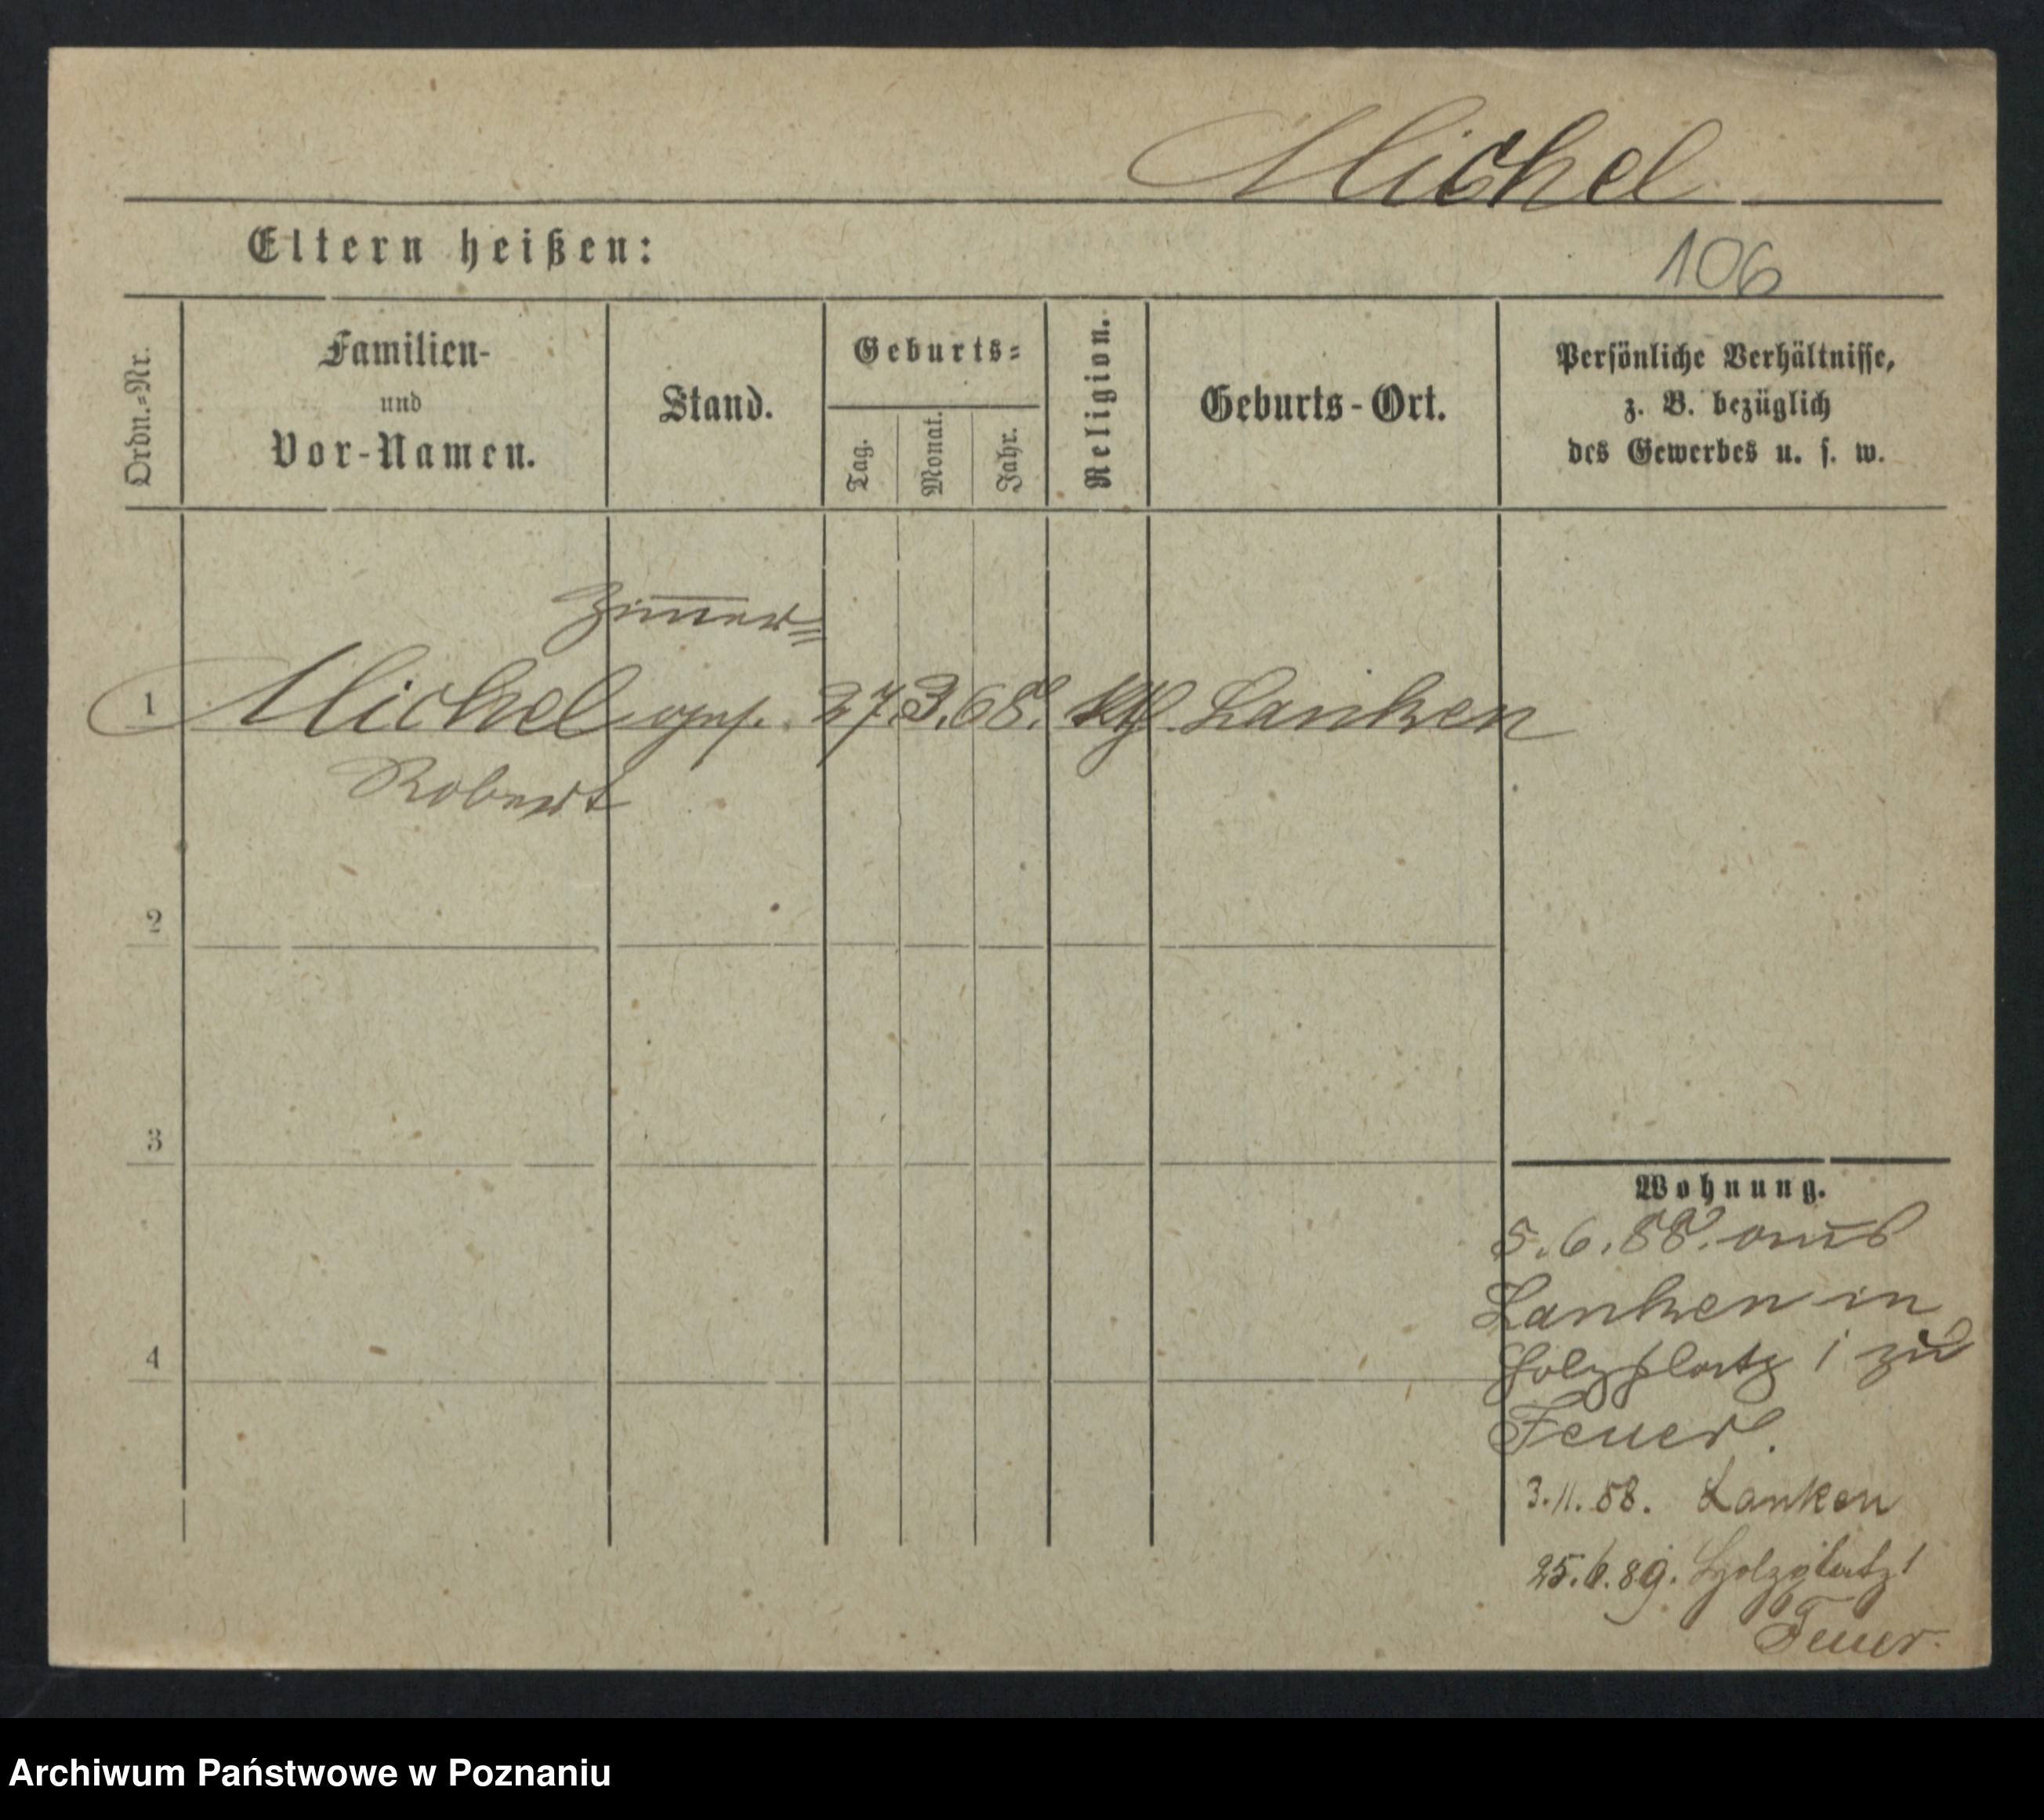 Michel
Eltern heißen:
106
Ordn.=Nr.
Familien-
und
Vor-Namen.
Stand.
Geburts=
Tag.
Monat.
Jahr.
Religion.
Geburts-Ort.
Persönliche Verhältnisse,
z. B. bezüglich
des Gewerbes u. s. w.
Zim̅er=
1 Michel 27. 3. 68. Kth. Lanken
Robert
2
3
4
Wohnung.
5. 6. 88. aus
Lanken in
Holzplatz 1 zu
Feuer.
3. 11. 88. Lanken
25. 6. 89. Holzplatz 1
Feuer.
Archiwum Państwowe w Poznaniu